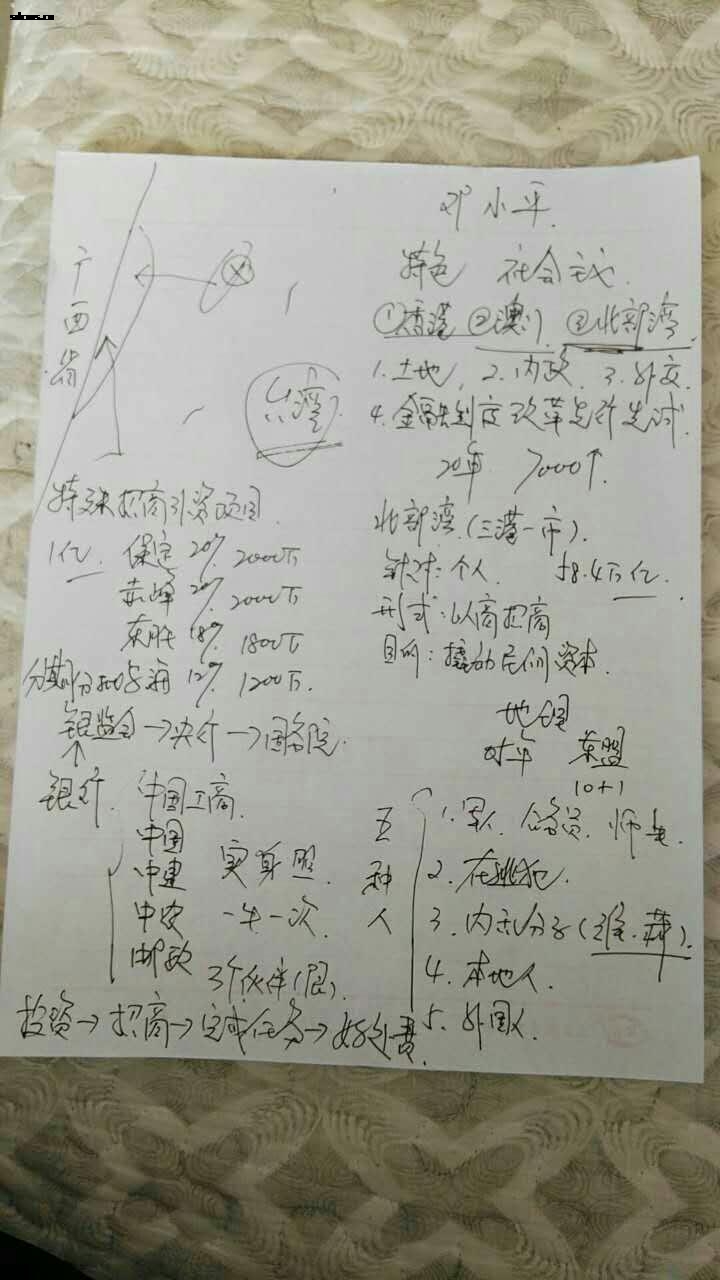 邓小平
特色 社会主义
①香港 ②澳门 ③北部湾
1.土地, 2.内政, 3.外交
4.金融制度改革先行先试
20年 7000个
北部湾(三港一市).
针对:个人 18.4万亿
形式:以商招商
目的:撬动民间资本
地图
对华 东盟
10+1
五种人
1.军人 公务员 师生
2.在逃犯
3.内乱分子(
4.本地人
5.外国人
广西省
台湾
特殊招商引资项目
1亿 保定 20% 2000万
赤峰 20% 2000万
东胜 18% 1800万
分期分批 12% 1200万
银监会→央行→国务院
银行 中国工商
中国
中建 实身照
中农 一生一次
邮政
3个伙伴(
投资→招商→完成任务→好处费